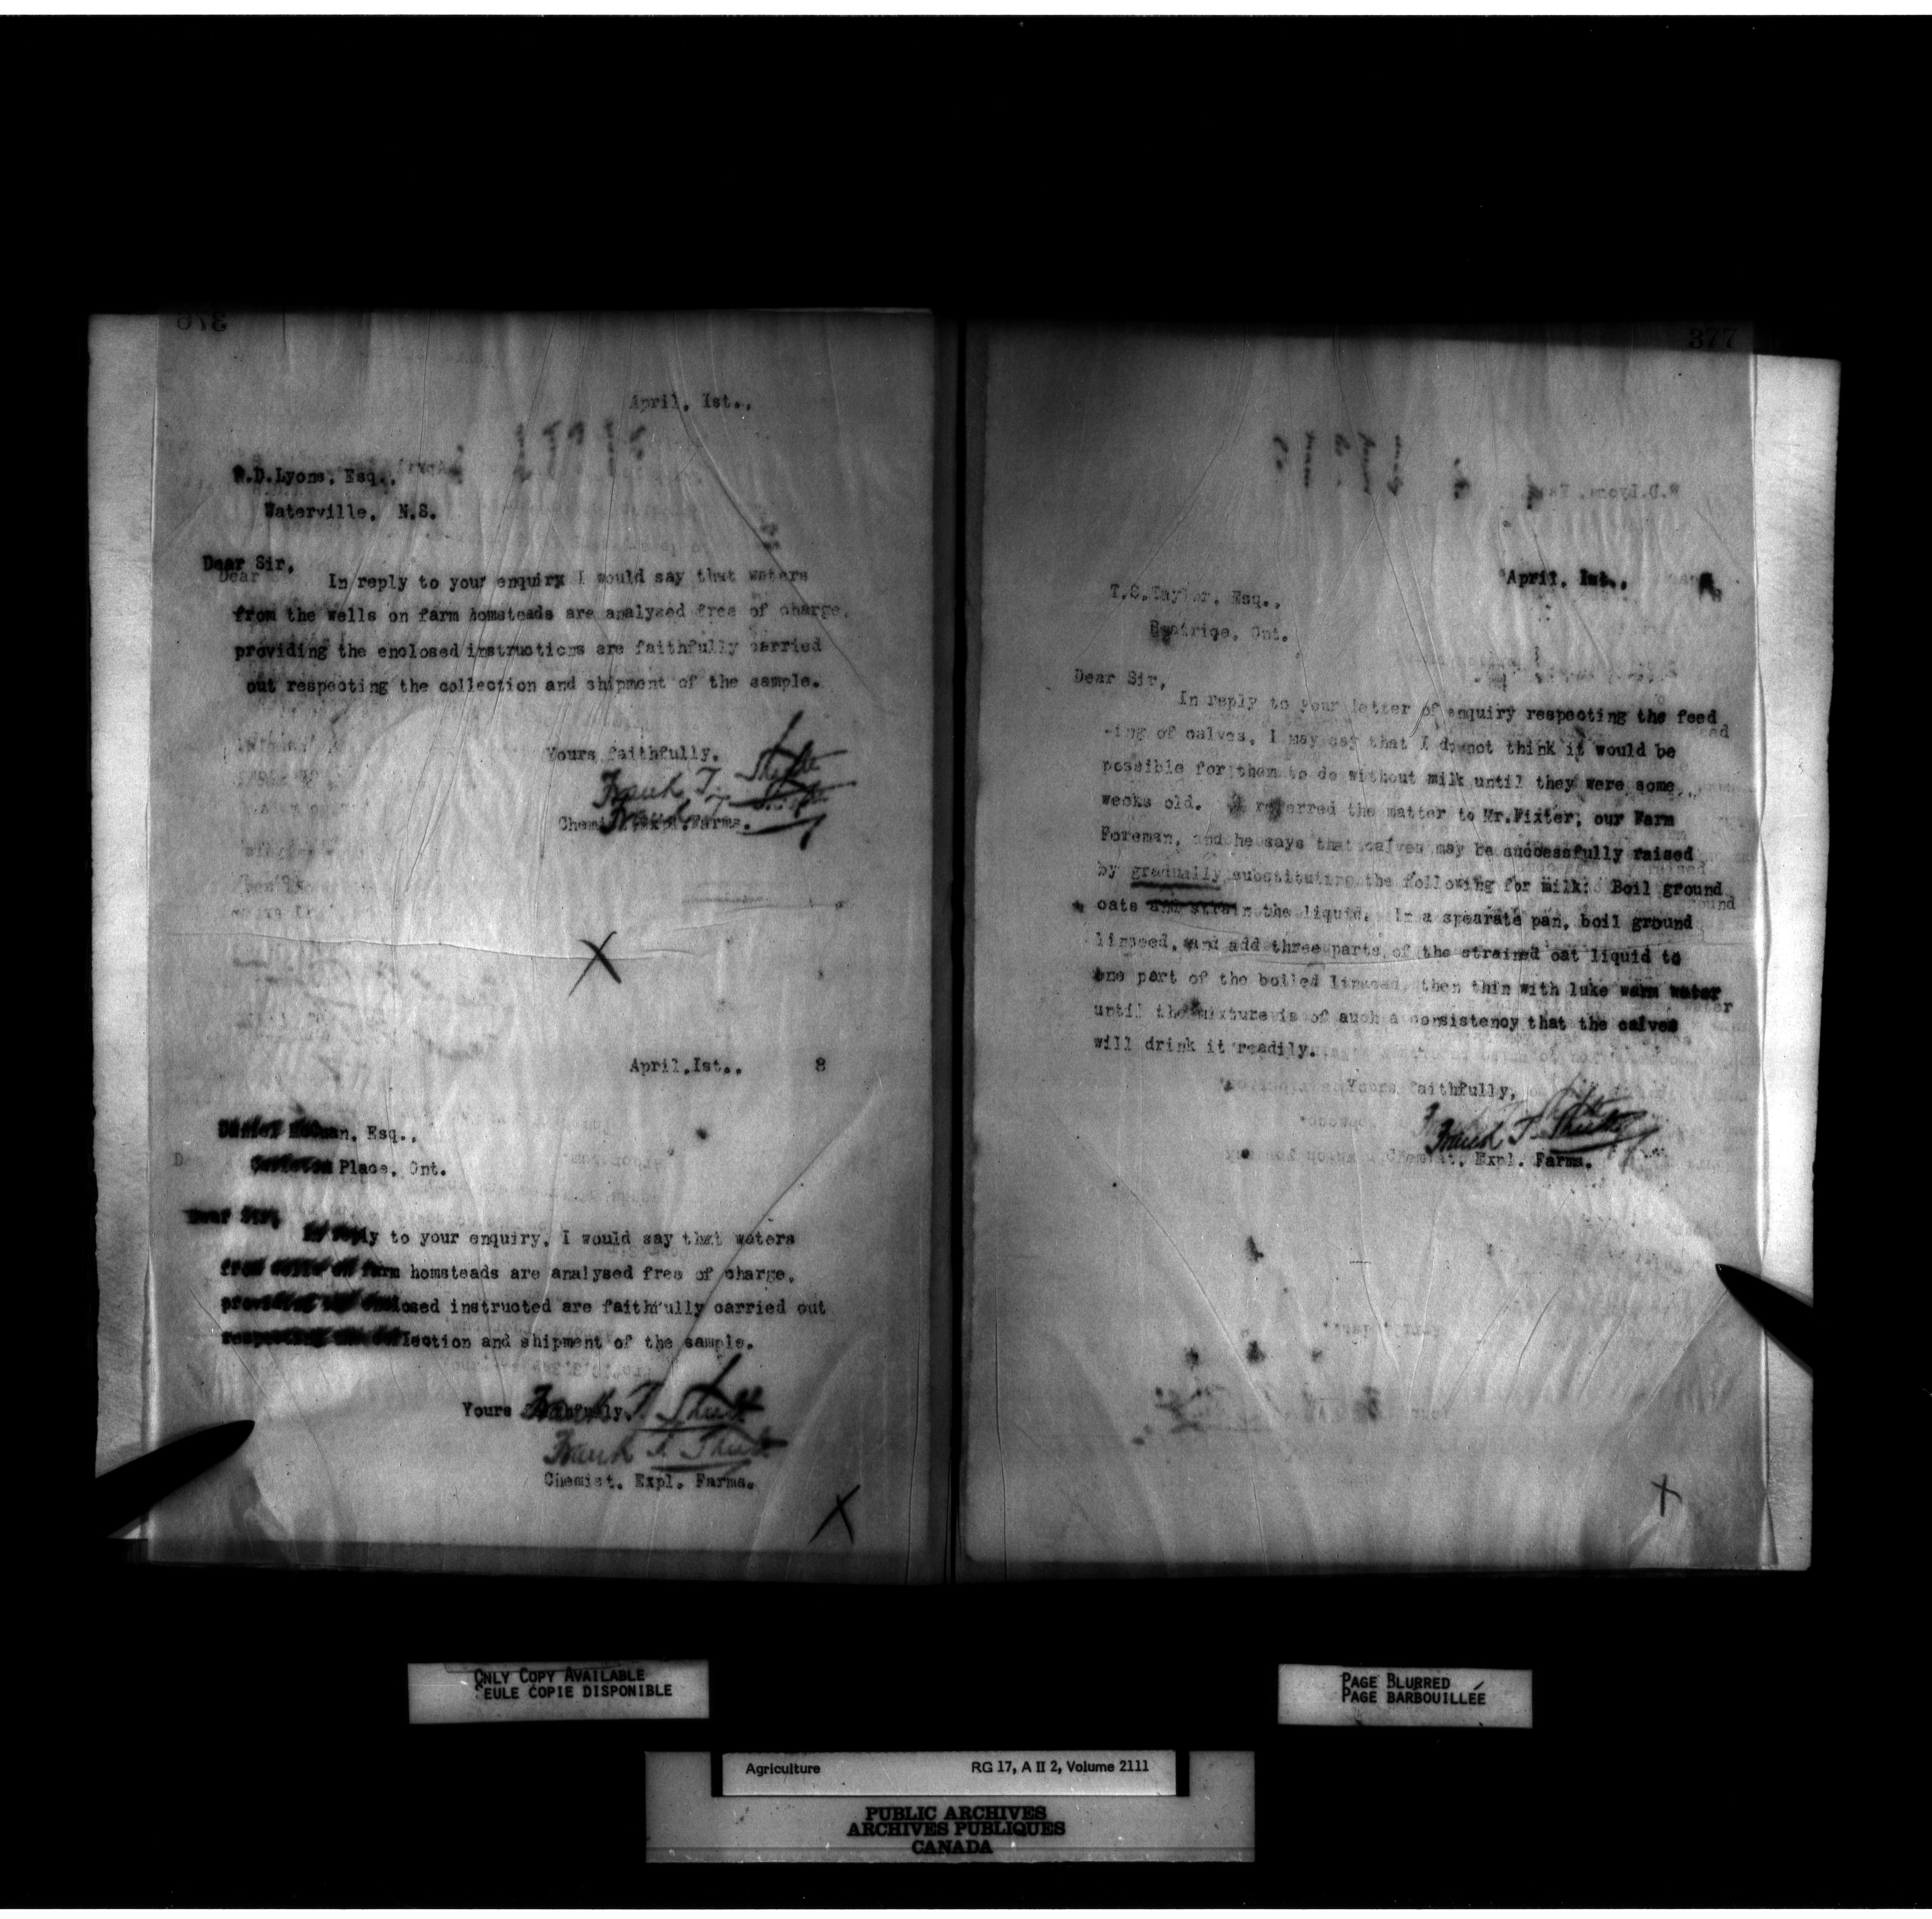 376
April, Ist.,
W.D.Lyons, Esq.,
Waterville, N.S.
Dear Sir,
In reply to your enquiry I would say that waters
from the wells on farm homsteads are analysed free of charge,
providing the enclosed instructions are faithfully carried
out respecting the collection and shipment of the sample.
Yours faithfully,
Frank T. Shutt
Chemist, Expl. Farms.
X
April,Ist., 8
Esq.,
Place, Ont.
Dear Sir,
In reply to your enquiry, I would say that waters
from wells on farm homsteads are analysed free of charge,
provided the enclosed instructed are faithfully carried out
respecting the collection and shipment of the sample.
Yours faithfully,
Frank T. Shutt
Chemist, Expl. Farms.
X
377
April, Ist.,
T.S.Taylor, Esq.,
Beatrice, Ont.
Dear Sir,
In reply to your letter of enquiry respecting the feed
-ing of calves, I may say that I do not think it would be
possible for them to do without milk until they were some
weeks old. I referred the matter to Mr.Fixter, our Farm
Foreman, and he says that calves may be successfully raised
by gradually substituting the following for milk: Boil ground
oats and strain the liquid. In a spearate pan, boil ground
linseed, and add three parts of the strained oat liquid to
one part of the boiled linseed, then thin with luke warm water
until the mixture is of such a consistency that the calves
will drink it readily.
Yours faithfully,
Frank T. Shutt
Chemist, Expl. Farms.
X
ONLY COPY AVAILABLE
SEULE COPIE DISPONIBLE
PAGE BLURRED
PAGE BARBOUILLÉE
Agriculture RG 17, A II 2, Volume 2111
PUBLIC ARCHIVES
ARCHIVES PUBLIQUES
CANADA